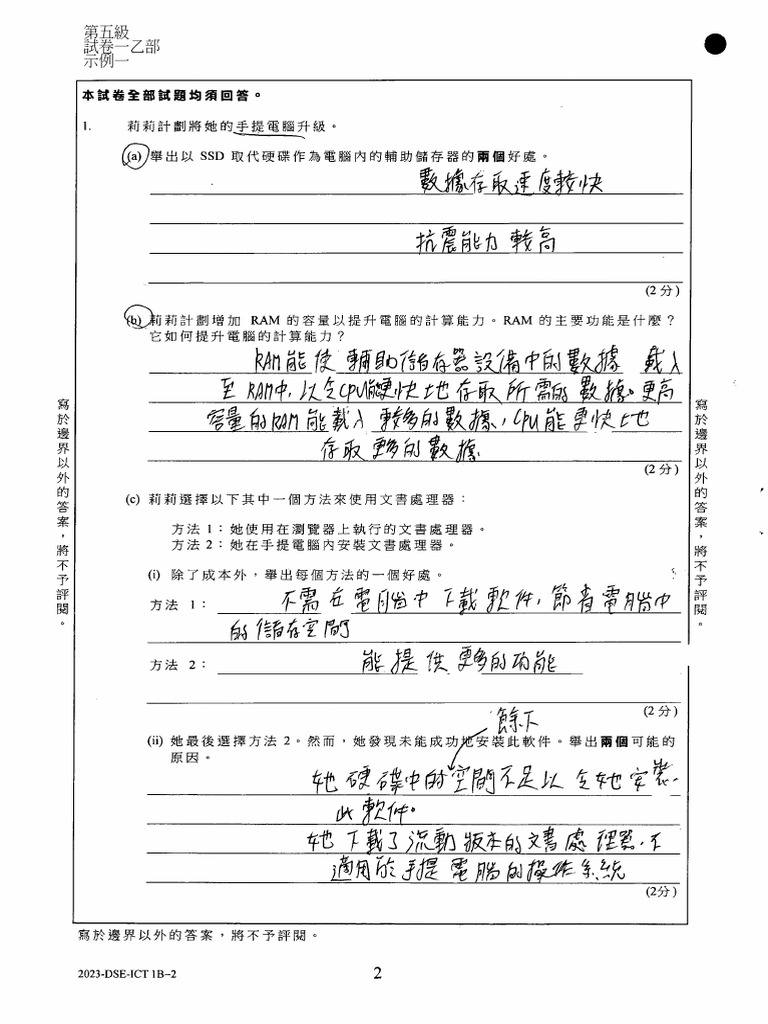 第五級
試卷一乙部
示例一
本試卷全部試題均須回答。
1. 莉莉計劃將她的手提電腦升級。
(a) 舉出以 SSD 取代硬碟作為電腦內的輔助儲存器的兩個好處。
數據存取速度較快
抗震能力較高
(2 分)
(b) 莉莉計劃增加 RAM 的容量以提升電腦的計算能力。RAM 的主要功能是什麼？
它如何提升電腦的計算能力？
RAM能使輔助儲存器設備中的數據 載入
至 RAM中, 以令CPU能更快地存取所需的數據。更高
容量的RAM能載入 較多的數據, CPU能更快地
存取更多的數據
(2 分)
(c) 莉莉選擇以下其中一個方法來使用文書處理器：
方法 1：她使用在瀏覽器上執行的文書處理器。
方法 2：她在手提電腦內安裝文書處理器。
(i) 除了成本外，舉出每個方法的一個好處。
方法 1： 不需在電腦中下載軟件, 節省電腦中
的儲存空間
方法 2： 能提供更多的功能
(2 分)
餘下
(ii) 她最後選擇方法 2。然而，她發現未能成功地安裝此軟件。舉出兩個可能的
原因。
她硬碟中的空間不足以令她安裝
此軟件。
她下載了流動版本的文書處理器, 不
適用於手提電腦的操作系統
(2分)
寫於邊界以外的答案，將不予評閱。
寫於邊界以外的答案，將不予評閱。
寫於邊界以外的答案，將不予評閱。
2023-DSE-ICT 1B–2
2